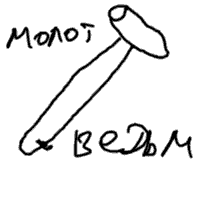 молот
ведьм